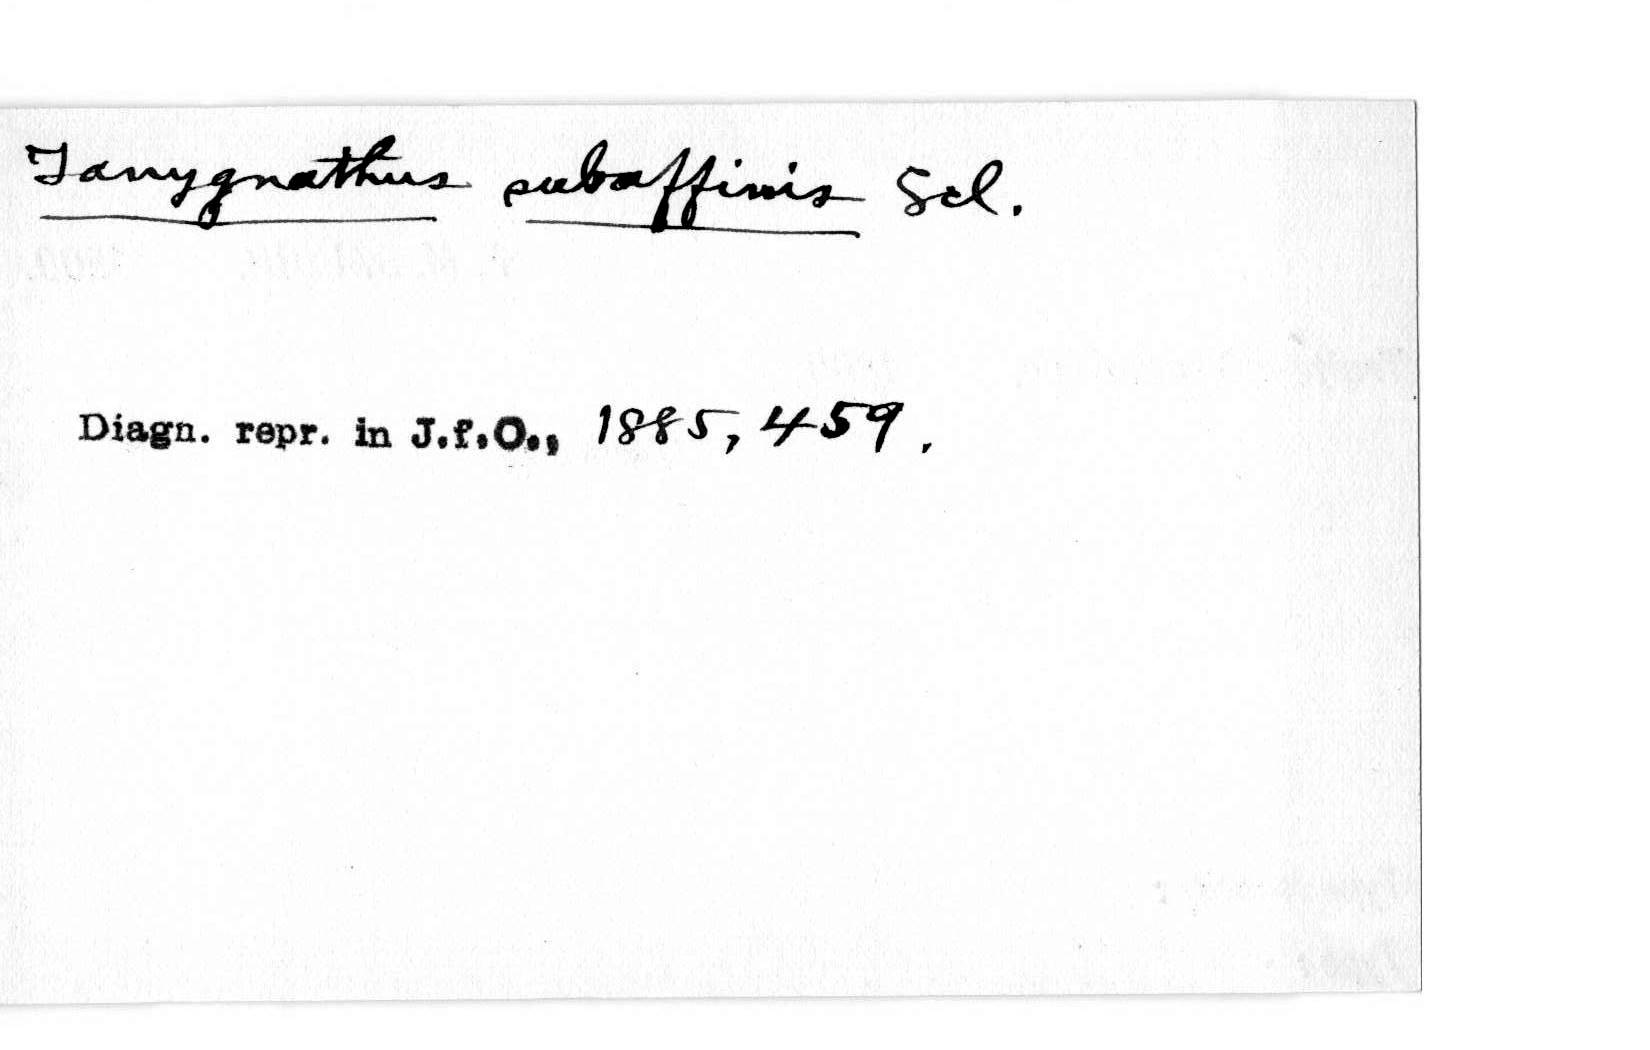 Tanygnathus subaffinis Scl.
Diagn. repr. in J.f.O., 1885, 459.